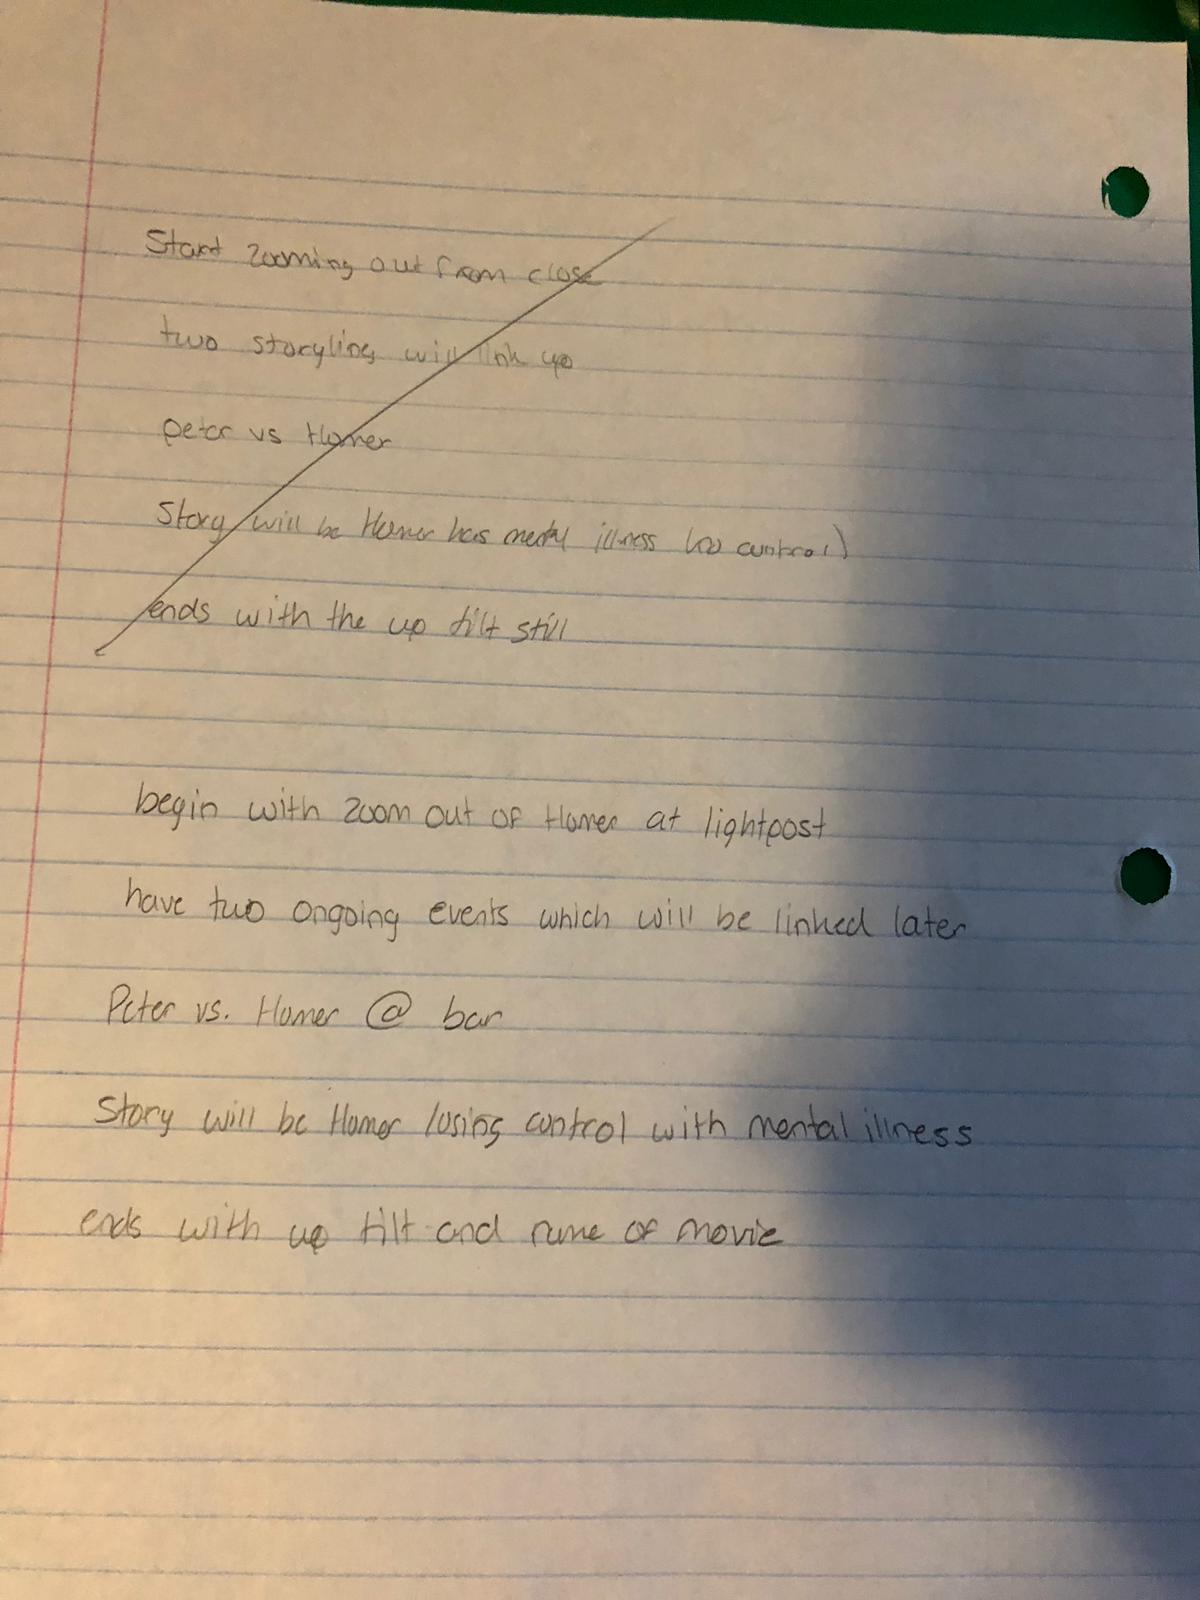 Start zooming out from close
two storyline will link up
peter vs Homer
Story will be Homer has mental illness (no control)
ends with the up tilt still
begin with zoom out of Homer at lightpost
have two ongoing events which will be linked later
Peter vs. Homer @ bar
Story will be Homer losing control with mental illness
ends with up tilt and name of movie